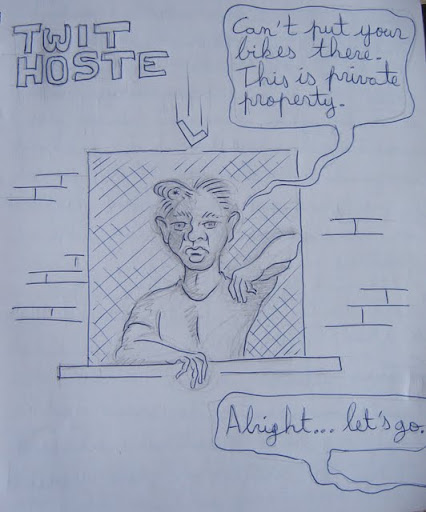 TWIT
HOSTE
Can't put your
bikes there.
This is private
property.
Alright... let's go.